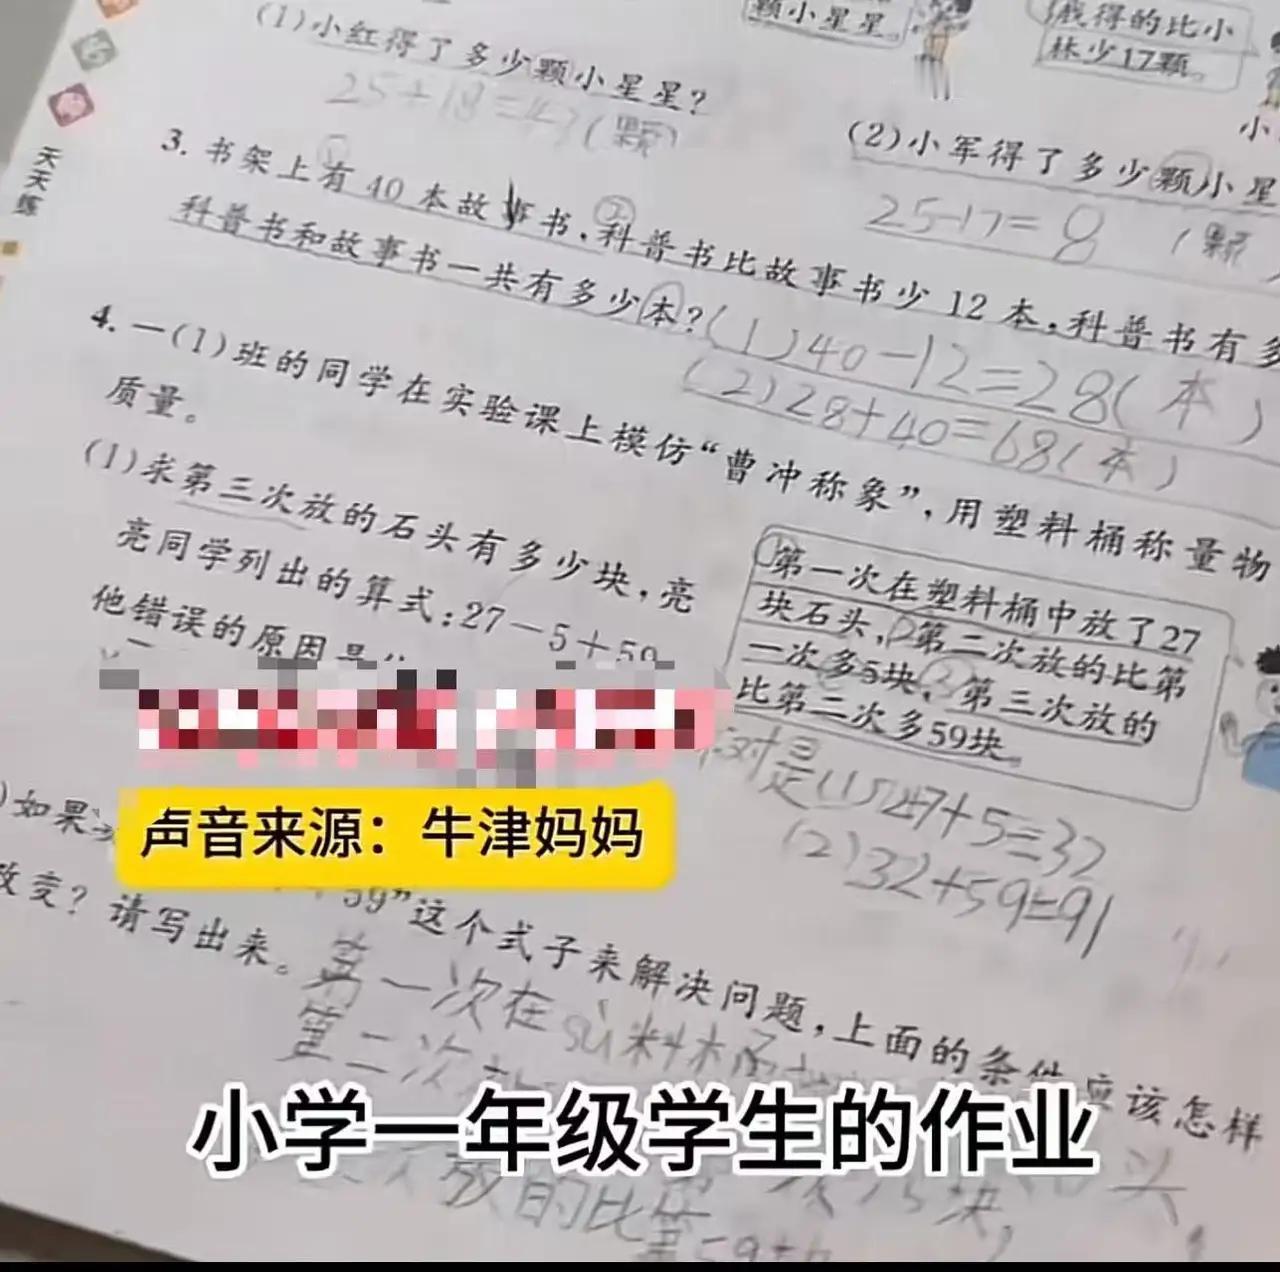 颗小星星。
我得的比小
林少17颗。
(1)小红得了多少颗小星星?
25+18=43(颗)
(2)小军得了多少颗小星
25-17=8 (颗
天天练
3. 书架上有40本故事书,科普书比故事书少12本,科普书有多
科普书和故事书一共有多少本?
(1)40-12=28(本)
(2)28+40=68(本)
4. 一(1)班的同学在实验课上模仿“曹冲称象”,用塑料桶称量物
质量。
(1)求第三次放的石头有多少块,亮
亮同学列出的算式:27-5+59
他错误的原因是
①第一次在塑料桶中放了27
块石头,②第二次放的比第
一次多5块,③第三次放的
比第二次多59块。
对是(1)27+5=32
(2)32+59=91
声音来源:牛津妈妈
)如果
59”这个式子来解决问题,上面的条件应该怎样
改变?请写出来。
第一次在sù料桶
第二次
小学一年级学生的作业
头,
放的比第
块,